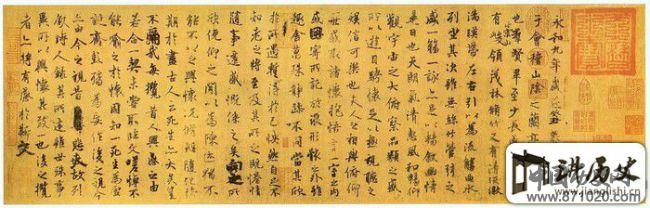 永和九年歲在癸丑
于會稽山陰之蘭亭
也群賢畢至少長
崇山
有峻領茂林脩竹又有清流激
湍暎帶左右引以為流觴曲水
列坐其次雖無絲竹管弦之
盛一觴一詠亦足以暢敘幽情
是日也天朗氣清惠風和暢仰
觀宇宙之大俯察品類之盛
所以遊目騁懷足以極視聽之
娛信可樂也夫人之相與俯仰
一世或取諸懷抱悟言一室之內
或因寄所託放浪形骸之外雖
趣舍萬殊靜躁不同當其欣
於所遇暫得於己快然自足不
知老之將至及其所之既惓情
隨事遷感慨係之矣向之所
欣俛仰之閒以為陳迹猶不
能不以之興懷況脩短隨化終
期於盡古人云死生亦大矣豈
不痛哉每攬昔人興感之由
若合一契未嘗不臨文嗟悼不
能喻之於懷固知一死生為虛
誕齊彭殤為妄作後之視今
亦由今之視昔悲夫故列
敘時人錄其所述雖世殊事
異所以興懷其致一也後之攬
者亦將有感於斯文
讲历史
www.jianglishi.cn
www.871020.com